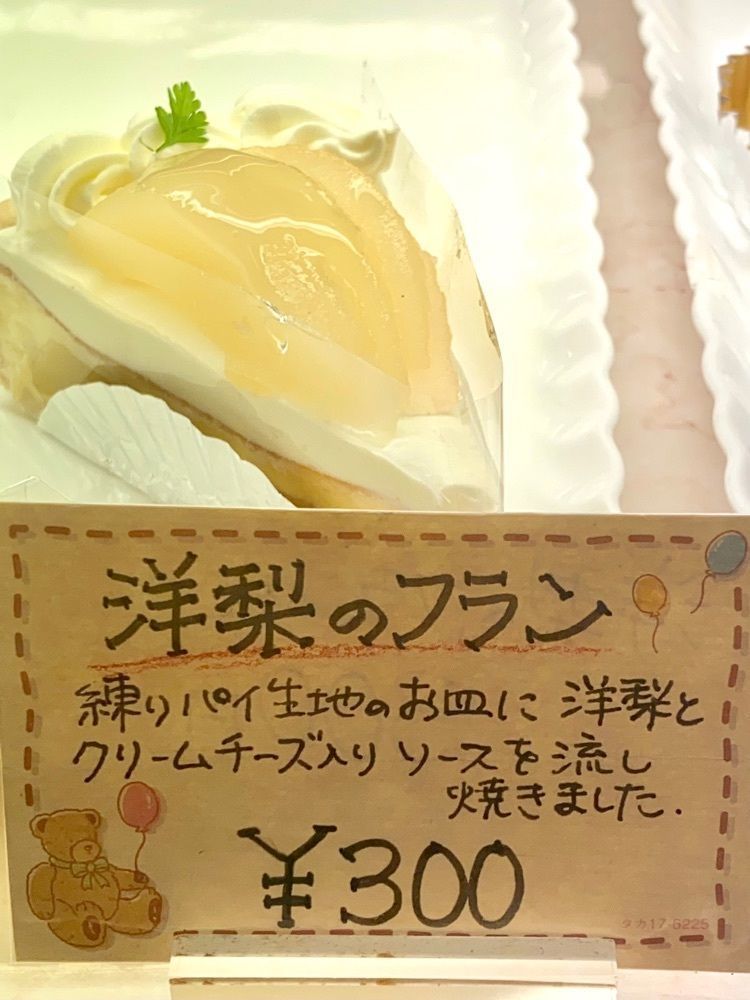 洋梨のフラン
練りパイ生地のお皿に 洋梨と
クリームチーズ入り ソースを流し
焼きました.
¥300
タカ17-6225